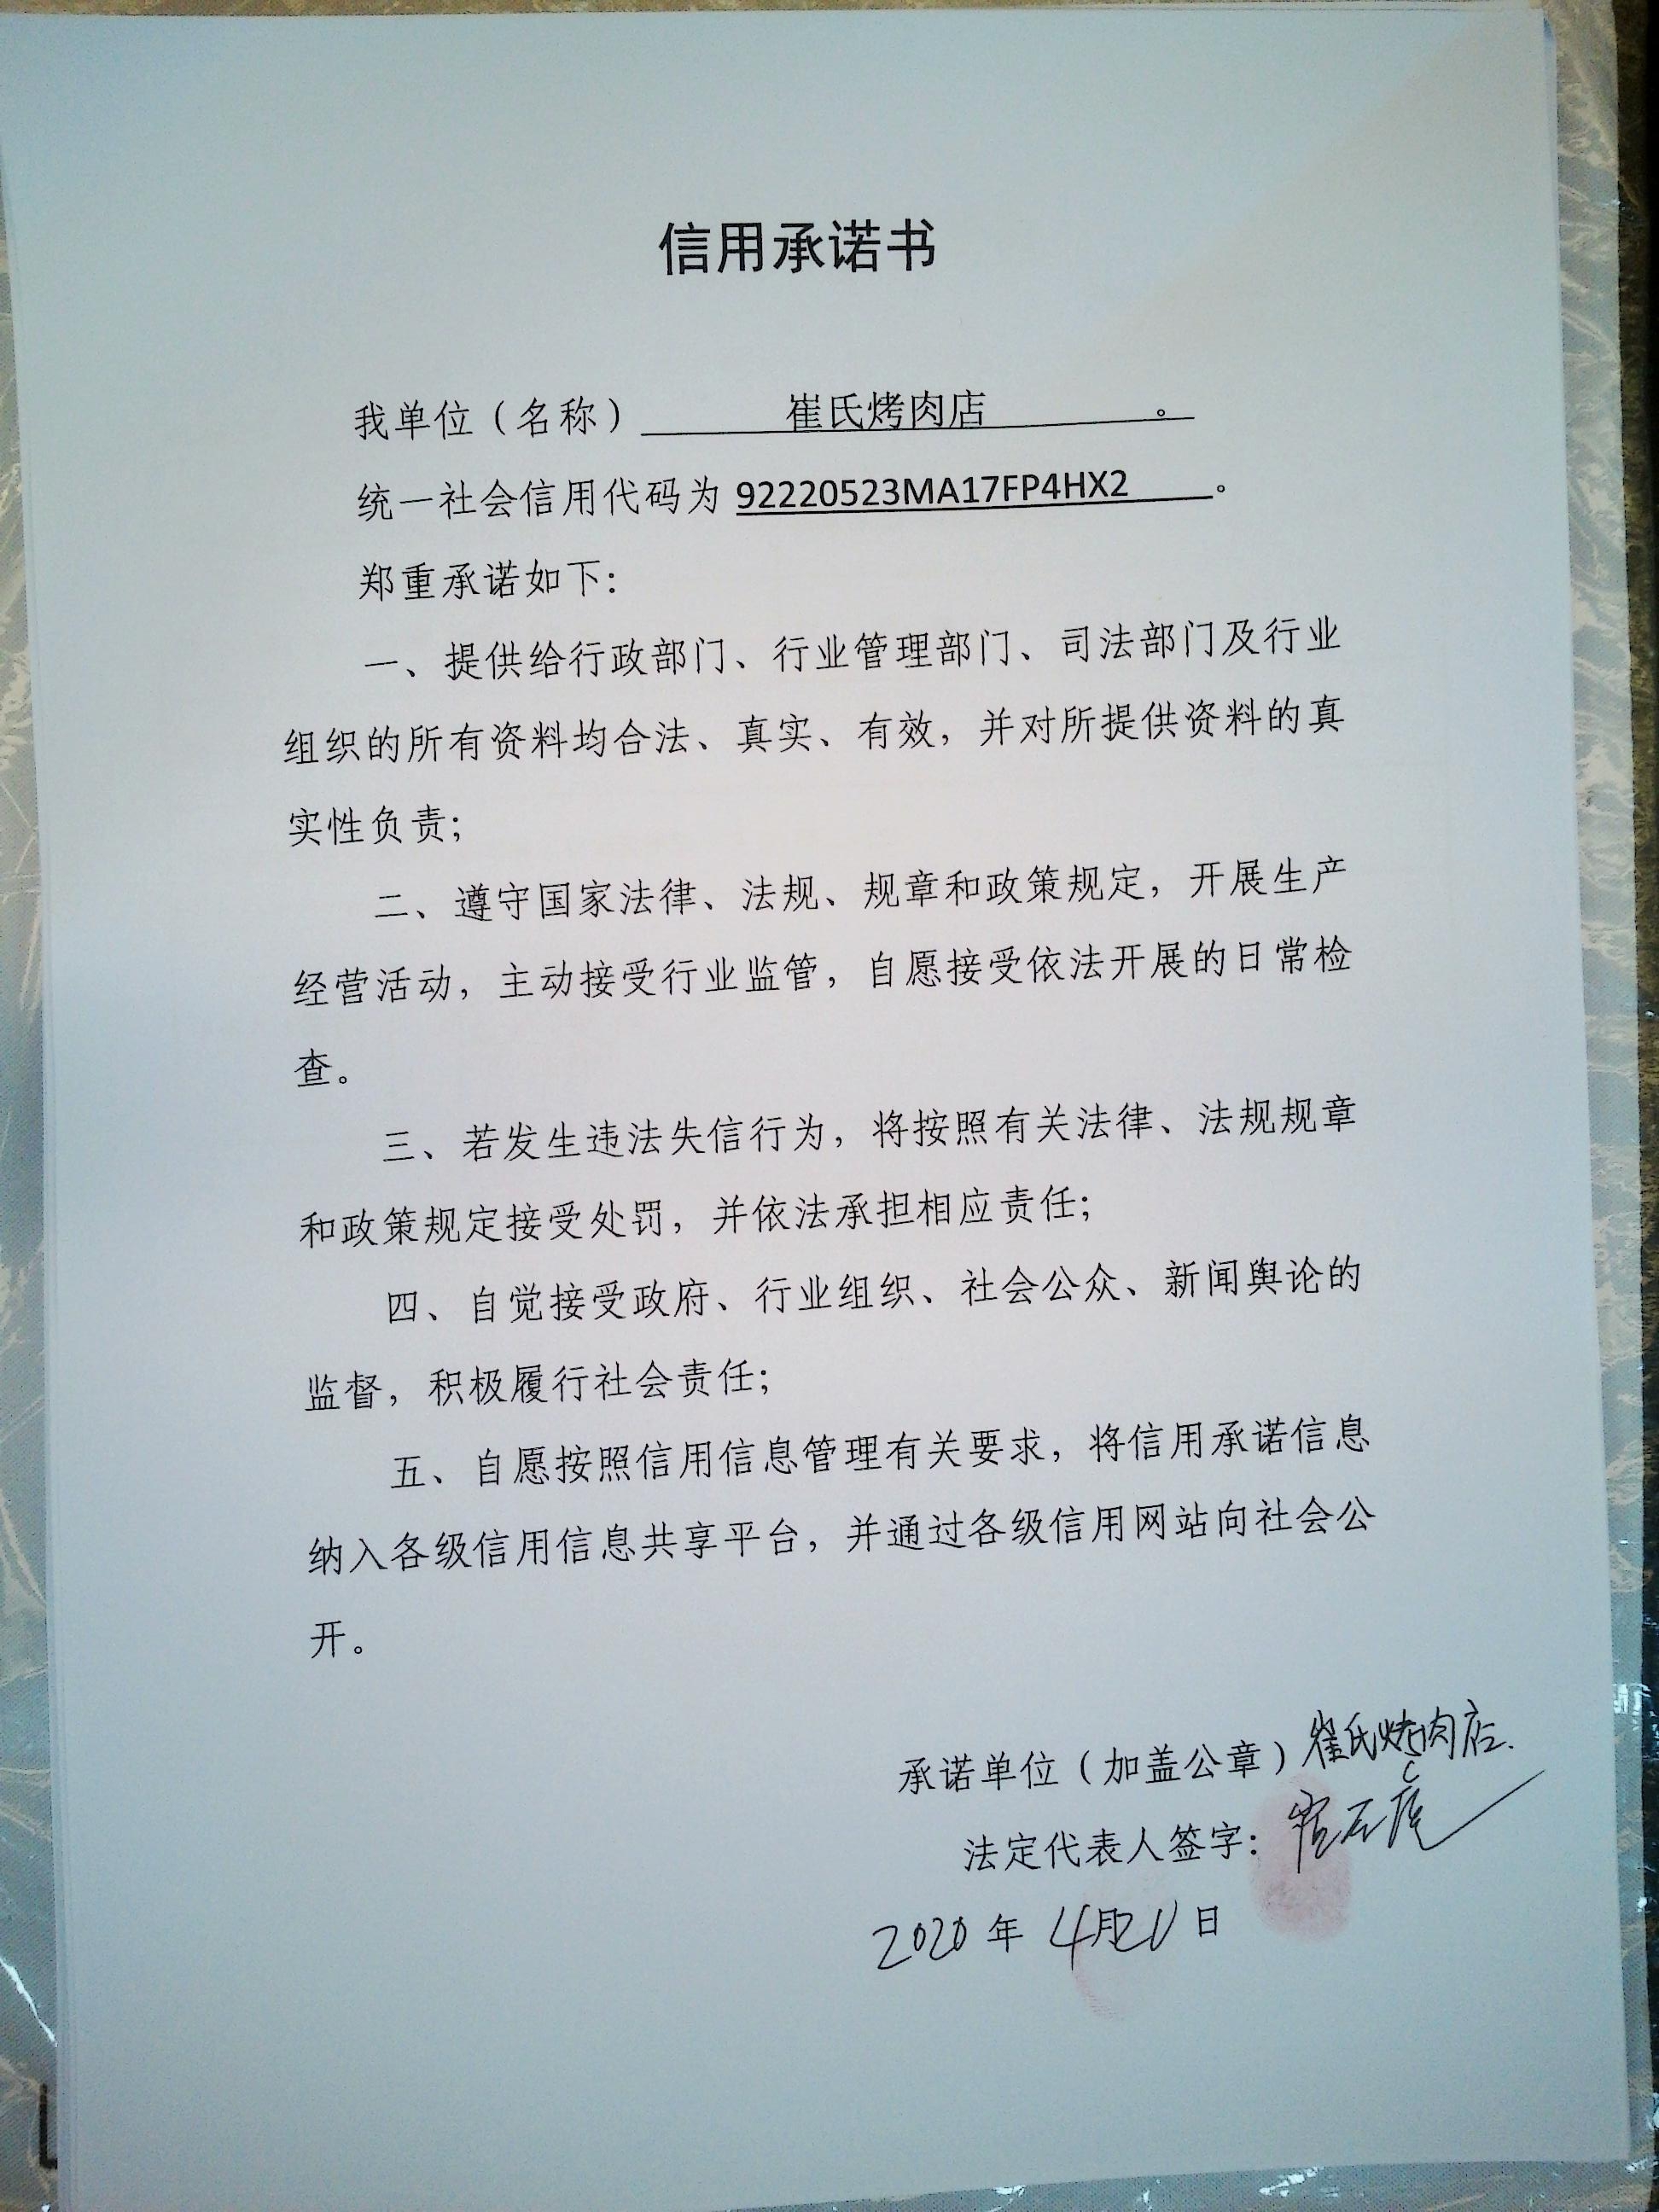 信用承诺书
我单位（名称） 崔氏烤肉店 。
统一社会信用代码为 92220523MA17FP4HX2 。
郑重承诺如下：
一、提供给行政部门、行业管理部门、司法部门及行业
组织的所有资料均合法、真实、有效，并对所提供资料的真
实性负责；
二、遵守国家法律、法规、规章和政策规定，开展生产
经营活动，主动接受行业监管，自愿接受依法开展的日常检
查。
三、若发生违法失信行为，将按照有关法律、法规规章
和政策规定接受处罚，并依法承担相应责任；
四、自觉接受政府、行业组织、社会公众、新闻舆论的
监督，积极履行社会责任；
五、自愿按照信用信息管理有关要求，将信用承诺信息
纳入各级信用信息共享平台，并通过各级信用网站向社会公
开。
承诺单位（加盖公章）崔氏烤肉店.
法定代表人签字：
2020 年 4月21日